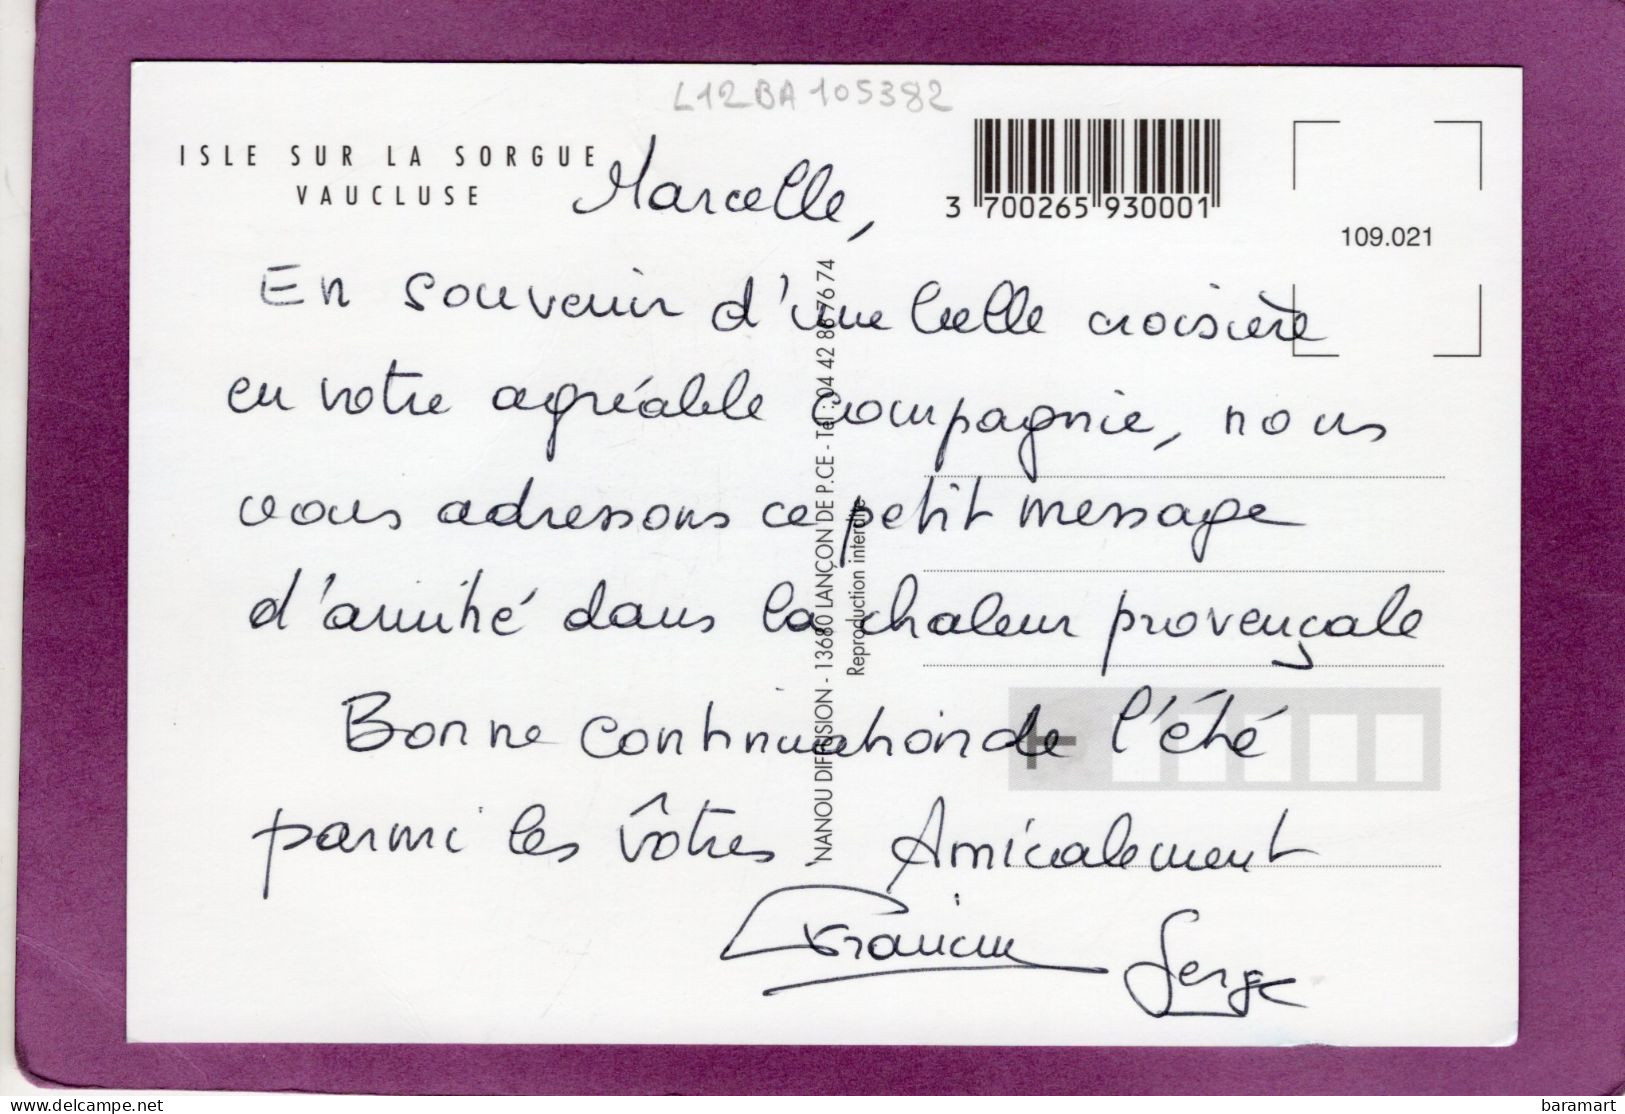 L12BA105382
ISLE SUR LA SORGUE
VAUCLUSE
3 700265 930001
109.021
Marcelle,
En souvenir d'une belle croisière
en votre agréable compagnie, nous
vous adressons ce petit message
d'amitié dans la chaleur provençale
Bonne continuation de l'été
parmi les vôtres Amicalement
Francine Serge
NANOU DIFFUSION - 13680 LANÇON DE P.CE - Tél : 04 42 86 76 74
Reproduction interdite
https://www.delcampe.net
baramart